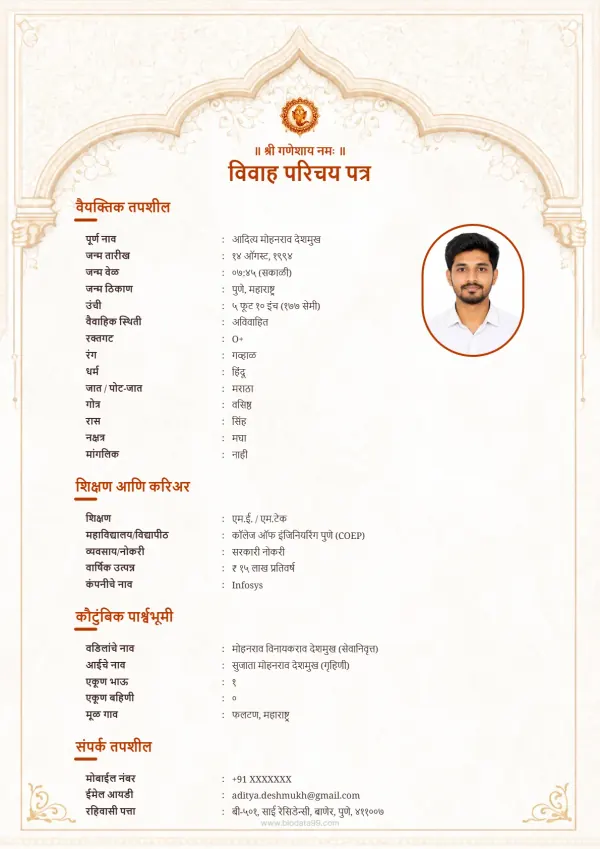 ॥ श्री गणेशाय नमः ॥
विवाह परिचय पत्र
वैयक्तिक तपशील
पूर्ण नाव : आदित्य मोहनराव देशमुख
जन्म तारीख : १४ ऑगस्ट, १९९४
जन्म वेळ : ०७:४५ (सकाळी)
जन्म ठिकाण : पुणे, महाराष्ट्र
उंची : ५ फूट १० इंच (१७७ सेमी)
वैवाहिक स्थिती : अविवाहित
रक्तगट : O+
रंग : गव्हाळ
धर्म : हिंदू
जात / पोट-जात : मराठा
गोत्र : वसिष्ठ
रास : सिंह
नक्षत्र : मघा
मांगलिक : नाही
शिक्षण आणि करिअर
शिक्षण : एम.ई. / एम.टेक
महाविद्यालय/विद्यापीठ : कॉलेज ऑफ इंजिनियरिंग पुणे (COEP)
व्यवसाय/नोकरी : सरकारी नोकरी
वार्षिक उत्पन्न : ₹ १५ लाख प्रतिवर्ष
कंपनीचे नाव : Infosys
कौटुंबिक पार्श्वभूमी
वडिलांचे नाव : मोहनराव विनायकराव देशमुख (सेवानिवृत्त)
आईचे नाव : सुजाता मोहनराव देशमुख (गृहिणी)
एकूण भाऊ : १
एकूण बहिणी : ०
मूळ गाव : फलटण, महाराष्ट्र
संपर्क तपशील
मोबाईल नंबर : +91 XXXXXXX
ईमेल आयडी : aditya.deshmukh@gmail.com
रहिवासी पत्ता : बी-५०१, साई रेसिडेन्सी, बाणेर, पुणे, ४११००७
www.biodata99.com